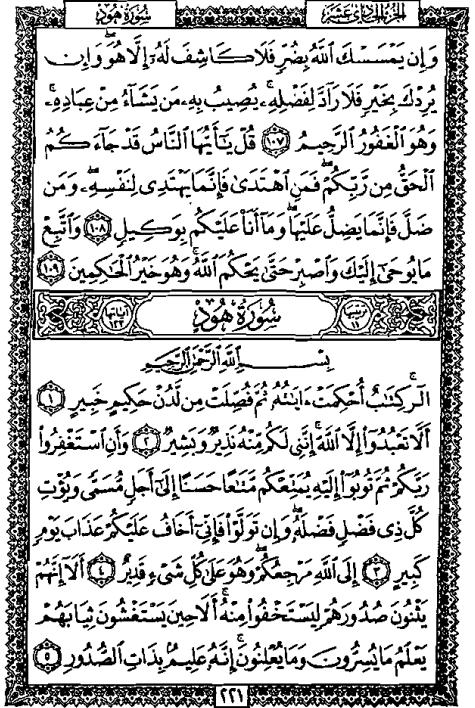 سُورَةُ هُودٍ
الجزء الحادى عشر
وَإِن يَمْسَسْكَ ٱللَّهُ بِضُرٍّ فَلَا كَاشِفَ لَهُۥٓ إِلَّا هُوَ ۖ وَإِن
يُرِدْكَ بِخَيْرٍ فَلَا رَآدَّ لِفَضْلِهِۦ ۚ يُصِيبُ بِهِۦ مَن يَشَآءُ مِنْ عِبَادِهِۦ ۚ
وَهُوَ ٱلْغَفُورُ ٱلرَّحِيمُ ١٠٧ قُلْ يَـٰٓأَيُّهَا ٱلنَّاسُ قَدْ جَآءَكُمُ
ٱلْحَقُّ مِن رَّبِّكُمْ ۖ فَمَنِ ٱهْتَدَىٰ فَإِنَّمَا يَهْتَدِى لِنَفْسِهِۦ ۖ وَمَن
ضَلَّ فَإِنَّمَا يَضِلُّ عَلَيْهَا ۖ وَمَآ أَنَا۠ عَلَيْكُم بِوَكِيلٍ ١٠٨ وَٱتَّبِعْ
مَا يُوحَىٰٓ إِلَيْكَ وَٱصْبِرْ حَتَّىٰ يَحْكُمَ ٱللَّهُ ۚ وَهُوَ خَيْرُ ٱلْحَـٰكِمِينَ ١٠٩
ترتيبها ١١ سُورَةُ هُودٍ آياتها ١٢٣
بِسْمِ ٱللَّهِ ٱلرَّحْمَـٰنِ ٱلرَّحِيمِ
الٓر ۚ كِتَـٰبٌ أُحْكِمَتْ ءَايَـٰتُهُۥ ثُمَّ فُصِّلَتْ مِن لَّدُنْ حَكِيمٍ خَبِيرٍ ١
أَلَّا تَعْبُدُوٓا۟ إِلَّا ٱللَّهَ ۚ إِنَّنِى لَكُم مِّنْهُ نَذِيرٌ وَبَشِيرٌ ٢ وَأَنِ ٱسْتَغْفِرُوا۟
رَبَّكُمْ ثُمَّ تُوبُوٓا۟ إِلَيْهِ يُمَتِّعْكُم مَّتَـٰعًا حَسَنًا إِلَىٰٓ أَجَلٍ مُّسَمًّى وَيُؤْتِ
كُلَّ ذِى فَضْلٍ فَضْلَهُۥ ۖ وَإِن تَوَلَّوْا۟ فَإِنِّىٓ أَخَافُ عَلَيْكُمْ عَذَابَ يَوْمٍ
كَبِيرٍ ٣ إِلَى ٱللَّهِ مَرْجِعُكُمْ ۖ وَهُوَ عَلَىٰ كُلِّ شَىْءٍ قَدِيرٌ ٤ أَلَآ إِنَّهُمْ
يَثْنُونَ صُدُورَهُمْ لِيَسْتَخْفُوا۟ مِنْهُ ۚ أَلَا حِينَ يَسْتَغْشُونَ ثِيَابَهُمْ
يَعْلَمُ مَا يُسِرُّونَ وَمَا يُعْلِنُونَ ۚ إِنَّهُۥ عَلِيمٌۢ بِذَاتِ ٱلصُّدُورِ ٥
٢٢١